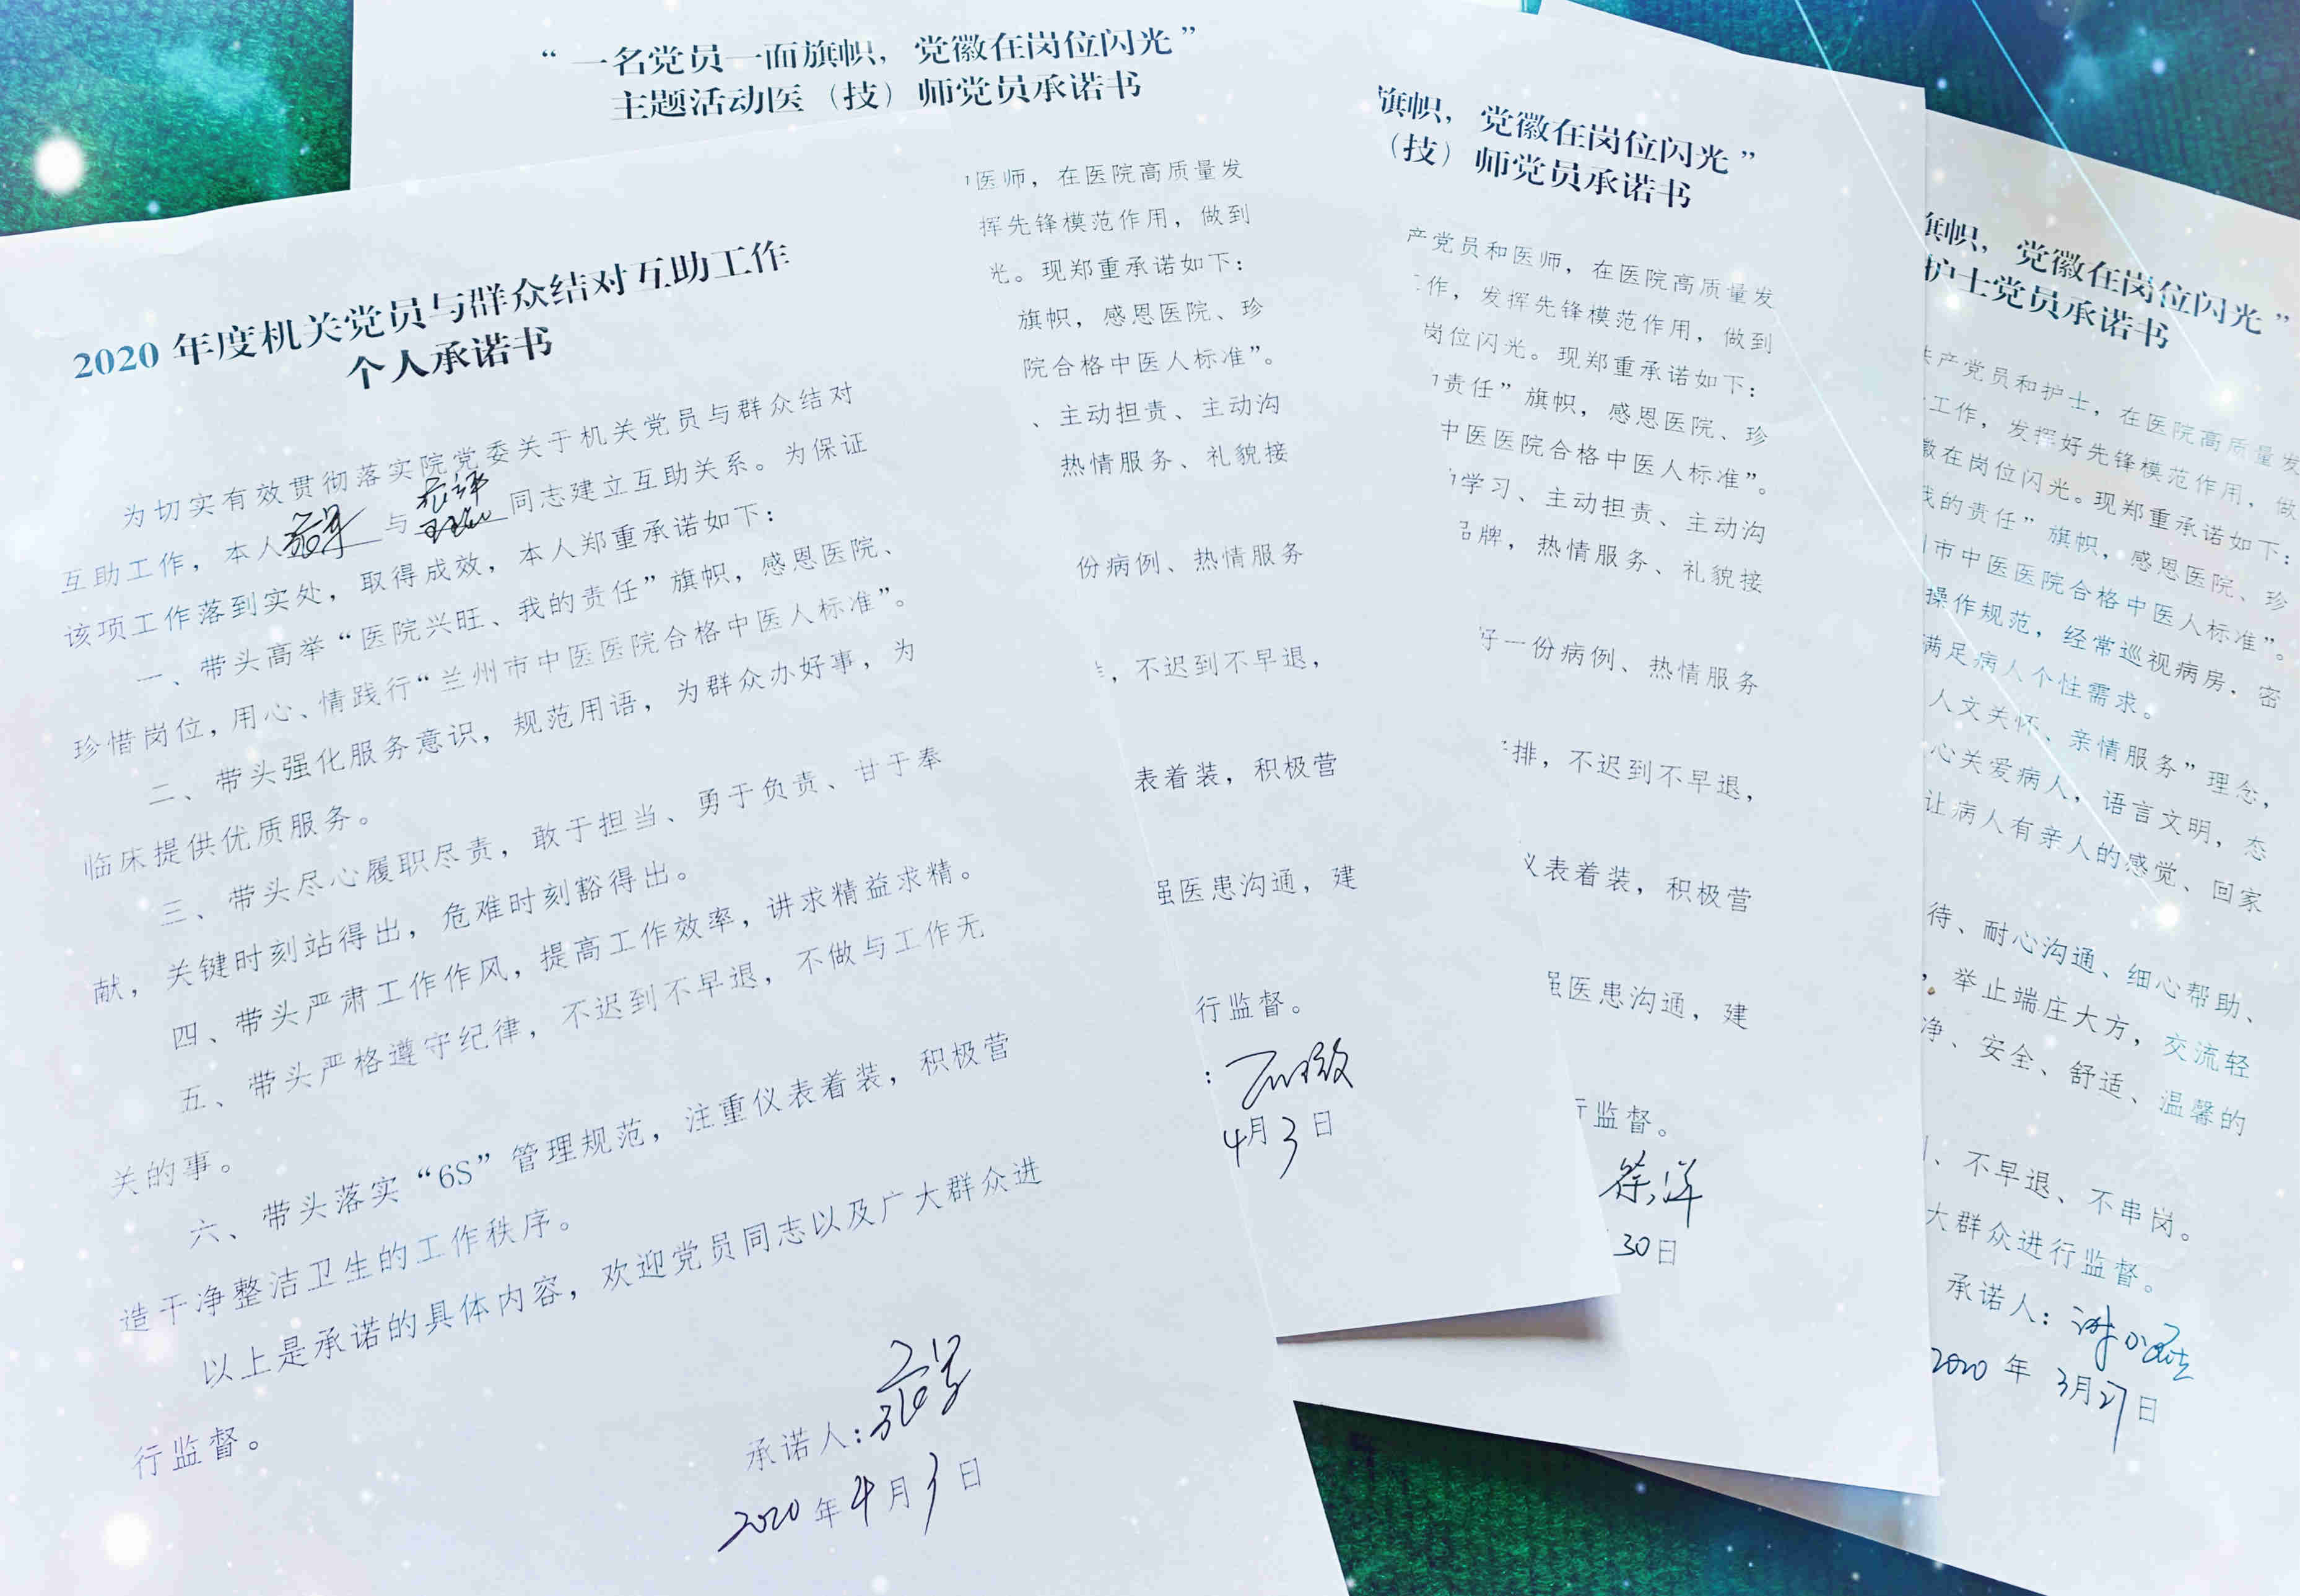 2020年度机关党员与群众结对互助工作
个人承诺书
为切实有效贯彻落实院党委关于机关党员与群众结对
互助工作，本人 与 同志建立互助关系。为保证
该项工作落到实处，取得成效，本人郑重承诺如下：
一、带头高举“医院兴旺、我的责任”旗帜，感恩医院、
珍惜岗位，用心、情践行“兰州市中医医院合格中医人标准”。
二、带头强化服务意识，规范用语，为群众办好事，为
临床提供优质服务。
三、带头尽心履职尽责，敢于担当、勇于负责、甘于奉
献，关键时刻站得出，危难时刻豁得出。
四、带头严肃工作作风，提高工作效率，讲求精益求精。
五、带头严格遵守纪律，不迟到不早退，不做与工作无
关的事。
六、带头落实“6S”管理规范，注重仪表着装，积极营
造干净整洁卫生的工作秩序。
以上是承诺的具体内容，欢迎党员同志以及广大群众进
行监督。
承诺人：
2020年4月3日
“一名党员一面旗帜，党徽在岗位闪光”
主题活动医（技）师党员承诺书
医师，在医院高质量发
挥先锋模范作用，做到
光。现郑重承诺如下：
旗帜，感恩医院、珍
院合格中医人标准”。
、主动担责、主动沟
热情服务、礼貌接
份病例、热情服务
，不迟到不早退，
表着装，积极营
强医患沟通，建
行监督。
：
4月3日
旗帜，党徽在岗位闪光”
（技）师党员承诺书
产党员和医师，在医院高质量发
作，发挥先锋模范作用，做到
岗位闪光。现郑重承诺如下：
责任”旗帜，感恩医院、珍
中医医院合格中医人标准”。
学习、主动担责、主动沟
品牌，热情服务、礼貌接
好一份病例、热情服务
排，不迟到不早退，
仪表着装，积极营
强医患沟通，建
行监督。
徐洋
30日
旗帜，党徽在岗位闪光”
护士党员承诺书
共产党员和护士，在医院高质量发
工作，发挥好先锋模范作用，做
徽在岗位闪光。现郑重承诺如下：
我的责任”旗帜，感恩医院、珍
市中医医院合格中医人标准”。
操作规范，经常巡视病房，密
满足病人个性需求。
人文关怀、亲情服务”理念，
心关爱病人，语言文明，态
让病人有亲人的感觉、回家
待、耐心沟通、细心帮助、
，举止端庄大方，交流轻
净、安全、舒适、温馨的
、不早退、不串岗。
大群众进行监督。
承诺人：
2020年3月27日